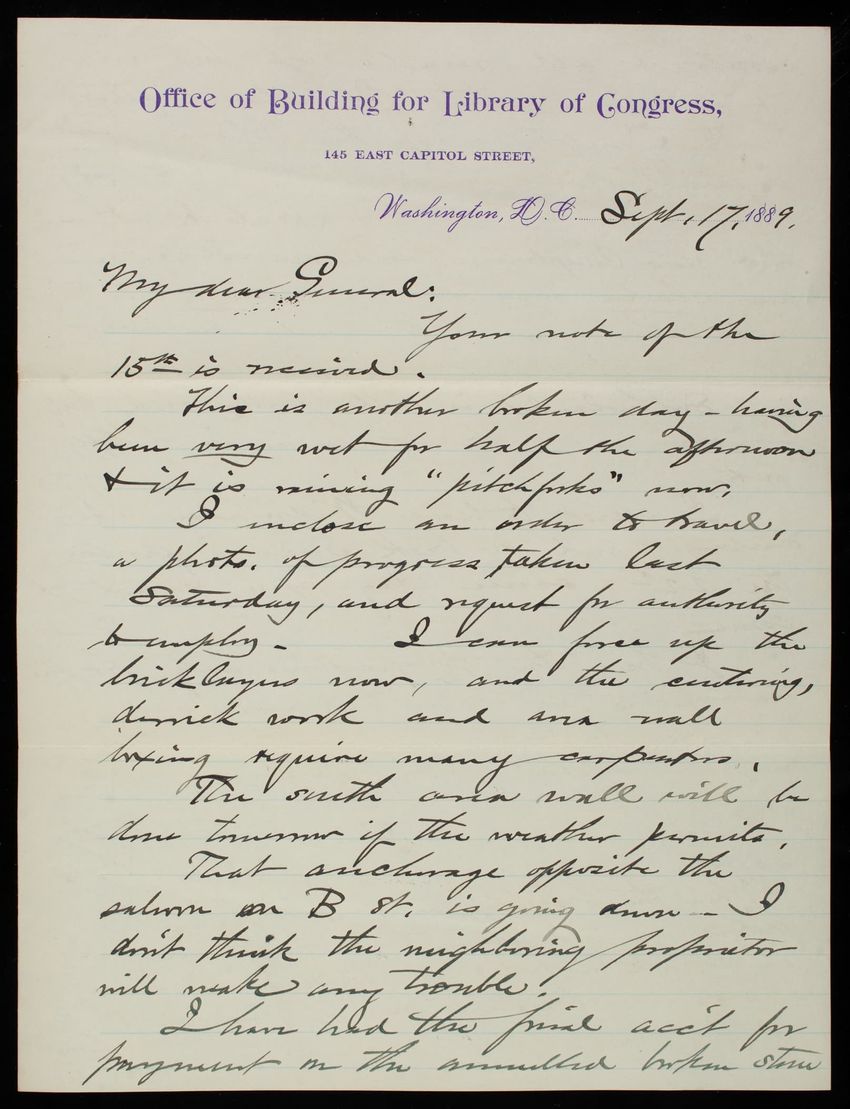 Office of Building for Library of Congress,
145 EAST CAPITOL STREET,
Washington, D. C. Sept. 17, 1889.
My dear General:
Your note of the
15th is received.
This is another broken day - having
been very wet for half the afternoon
& it is raining "pitchforks" now.
I inclose an order to travel,
a photo. of progress taken last
Saturday, and request for authority
to employ - I can force up the
bricklayers now, and the centering,
derrick work and area wall
boxing require many carpenters.
The south area wall will be
done tomorrow if the weather permits.
That anchorage opposite the
saloon on B St. is going down - I
don't think the neighboring proprietor
will make any trouble.
I have had the final acc't for
payment on the annulled broken stone